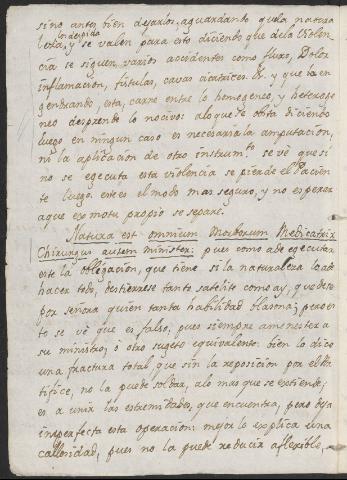 sino antes bien dejarlos, aguardando que la natura
los despida
leza, y se valen para esto diciendo que de la violen
cia se siguen varios accidentes como fluxo, Dolor
inflamacion, fistulas, cavas cicatrices &. y que va en
gendrando, esta, carne entre lo homogeneo, y heteroge
neo desprende lo nocivo: alo que se obsta diciendo
luego en ningun caso es necesaria la amputacion,
ni la aplicacion de otro instrum.to se vè que si
no se egecuta esta violencia se pierde el Pacien
te luego. este es el modo mas seguro, y no esperar
a que ex motu propio se separe.
Natura est omnium Morborum Medicatrix
Chirurgus autem minister: pues como a de egecutar
este la obligacion, que tiene si la naturaleza lo a de
hacer todo, destierrese tanto satelite como ay, quede
por señora quien tanta habilidad blasona; pero es
to se vè que es falso, pues siempre a menester a
su ministro, ò otro sugeto equivalente: bien lo dice
una fractura total que sin la reposicion por el Ar
tifice, no la puede soldar, a lo mas que se extiende,
es a unir las estremidades, que encuentra, pero deja
imperfecta esta operacion: mejor lo explica una
callosidad, pues no la puede reducir a flexible,